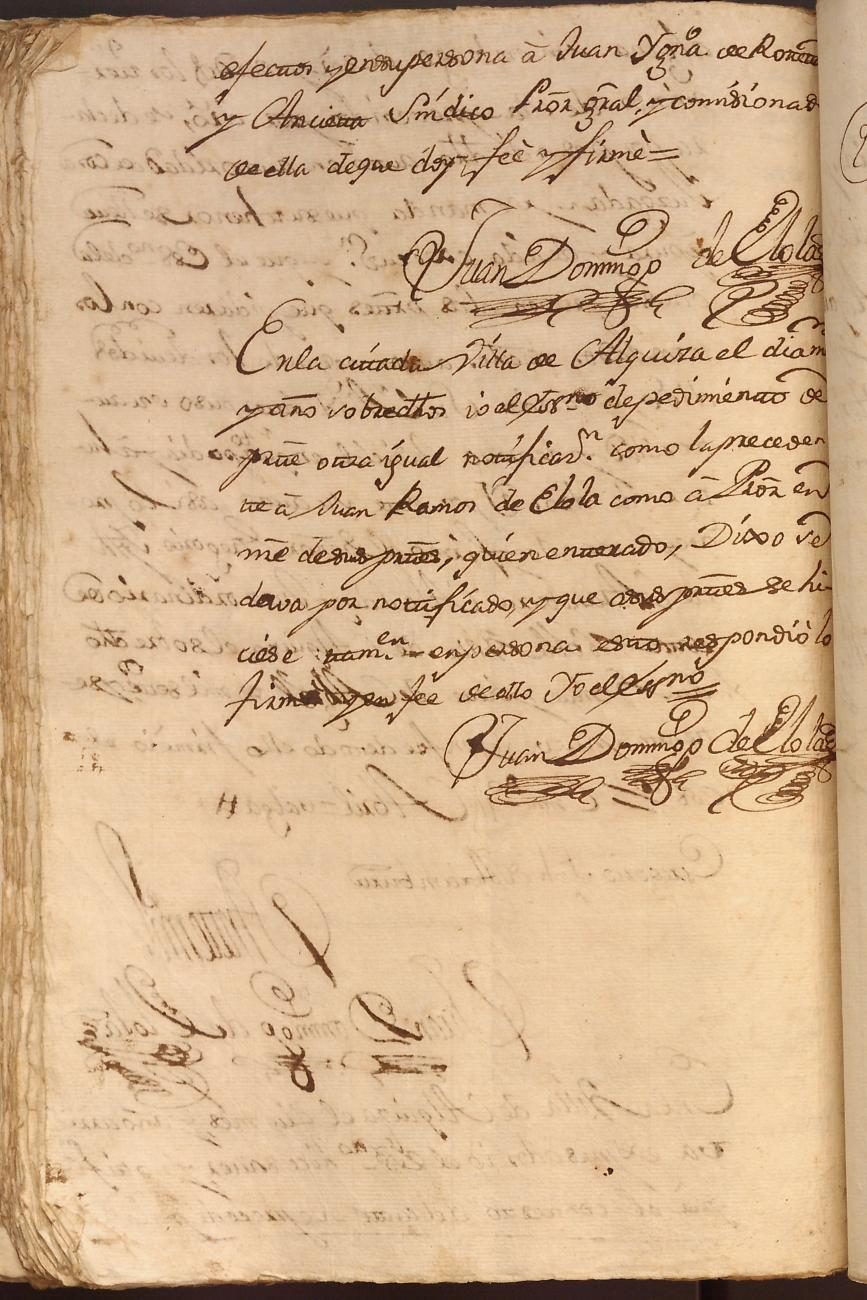 efectos y en su persona â Juan Ygnâ. de
y Ancieta Sindico Pror. gral. y comisionad
de ella de que doy feè y firmè=
Juan Domingo de Elola
En la citada Villa de Alquiza el dia m
y año sobredhos io el Esno de pedimiento de
prte otra igual notificasn. como la preceden
te â Juan Ramos de Elola como â Pror. en
me de sus prtes, quien enterado, Dixo se
dava por notificado, y que a sus prtes se hi
ciese tamen. en persona esto respondiò lo
firmè y en fee de ello Yo el Esno=
Juan Domingo de Elola